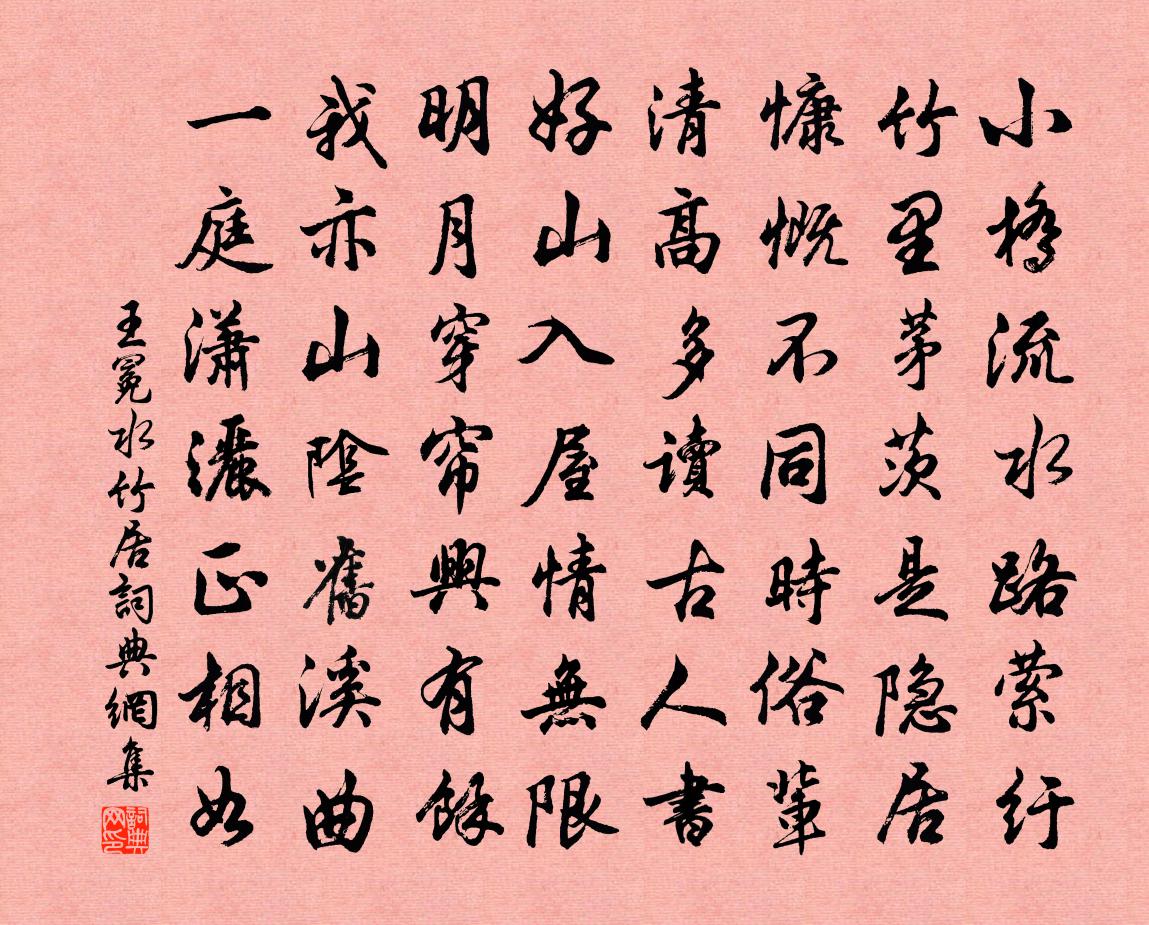 小橋流水路縈紆
竹里茅茨是隱居
慷慨不同時俗輩
清高多讀古人書
好山入屋情無限
明月穿帘興有餘
我亦山陰舊溪曲
一庭瀟灑正相如
王冕水竹居詞典網集
詞典网印